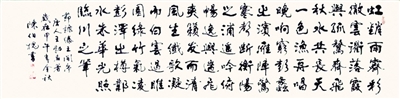 虹銷雨霽彩
徹雲衢落霞
與孤鶩齊飛
秋水共長天
一色漁舟唱
晚響窮彭蠡
之濱雁陣驚
寒聲斷衡陽
之浦遙吟俯
暢逸興遄飛
爽籟發而清
風生纖歌凝
而白雲遏睢
園綠竹氣凌
彭澤之樽鄴
水朱華光照
臨川之筆
歲在甲午年金秋